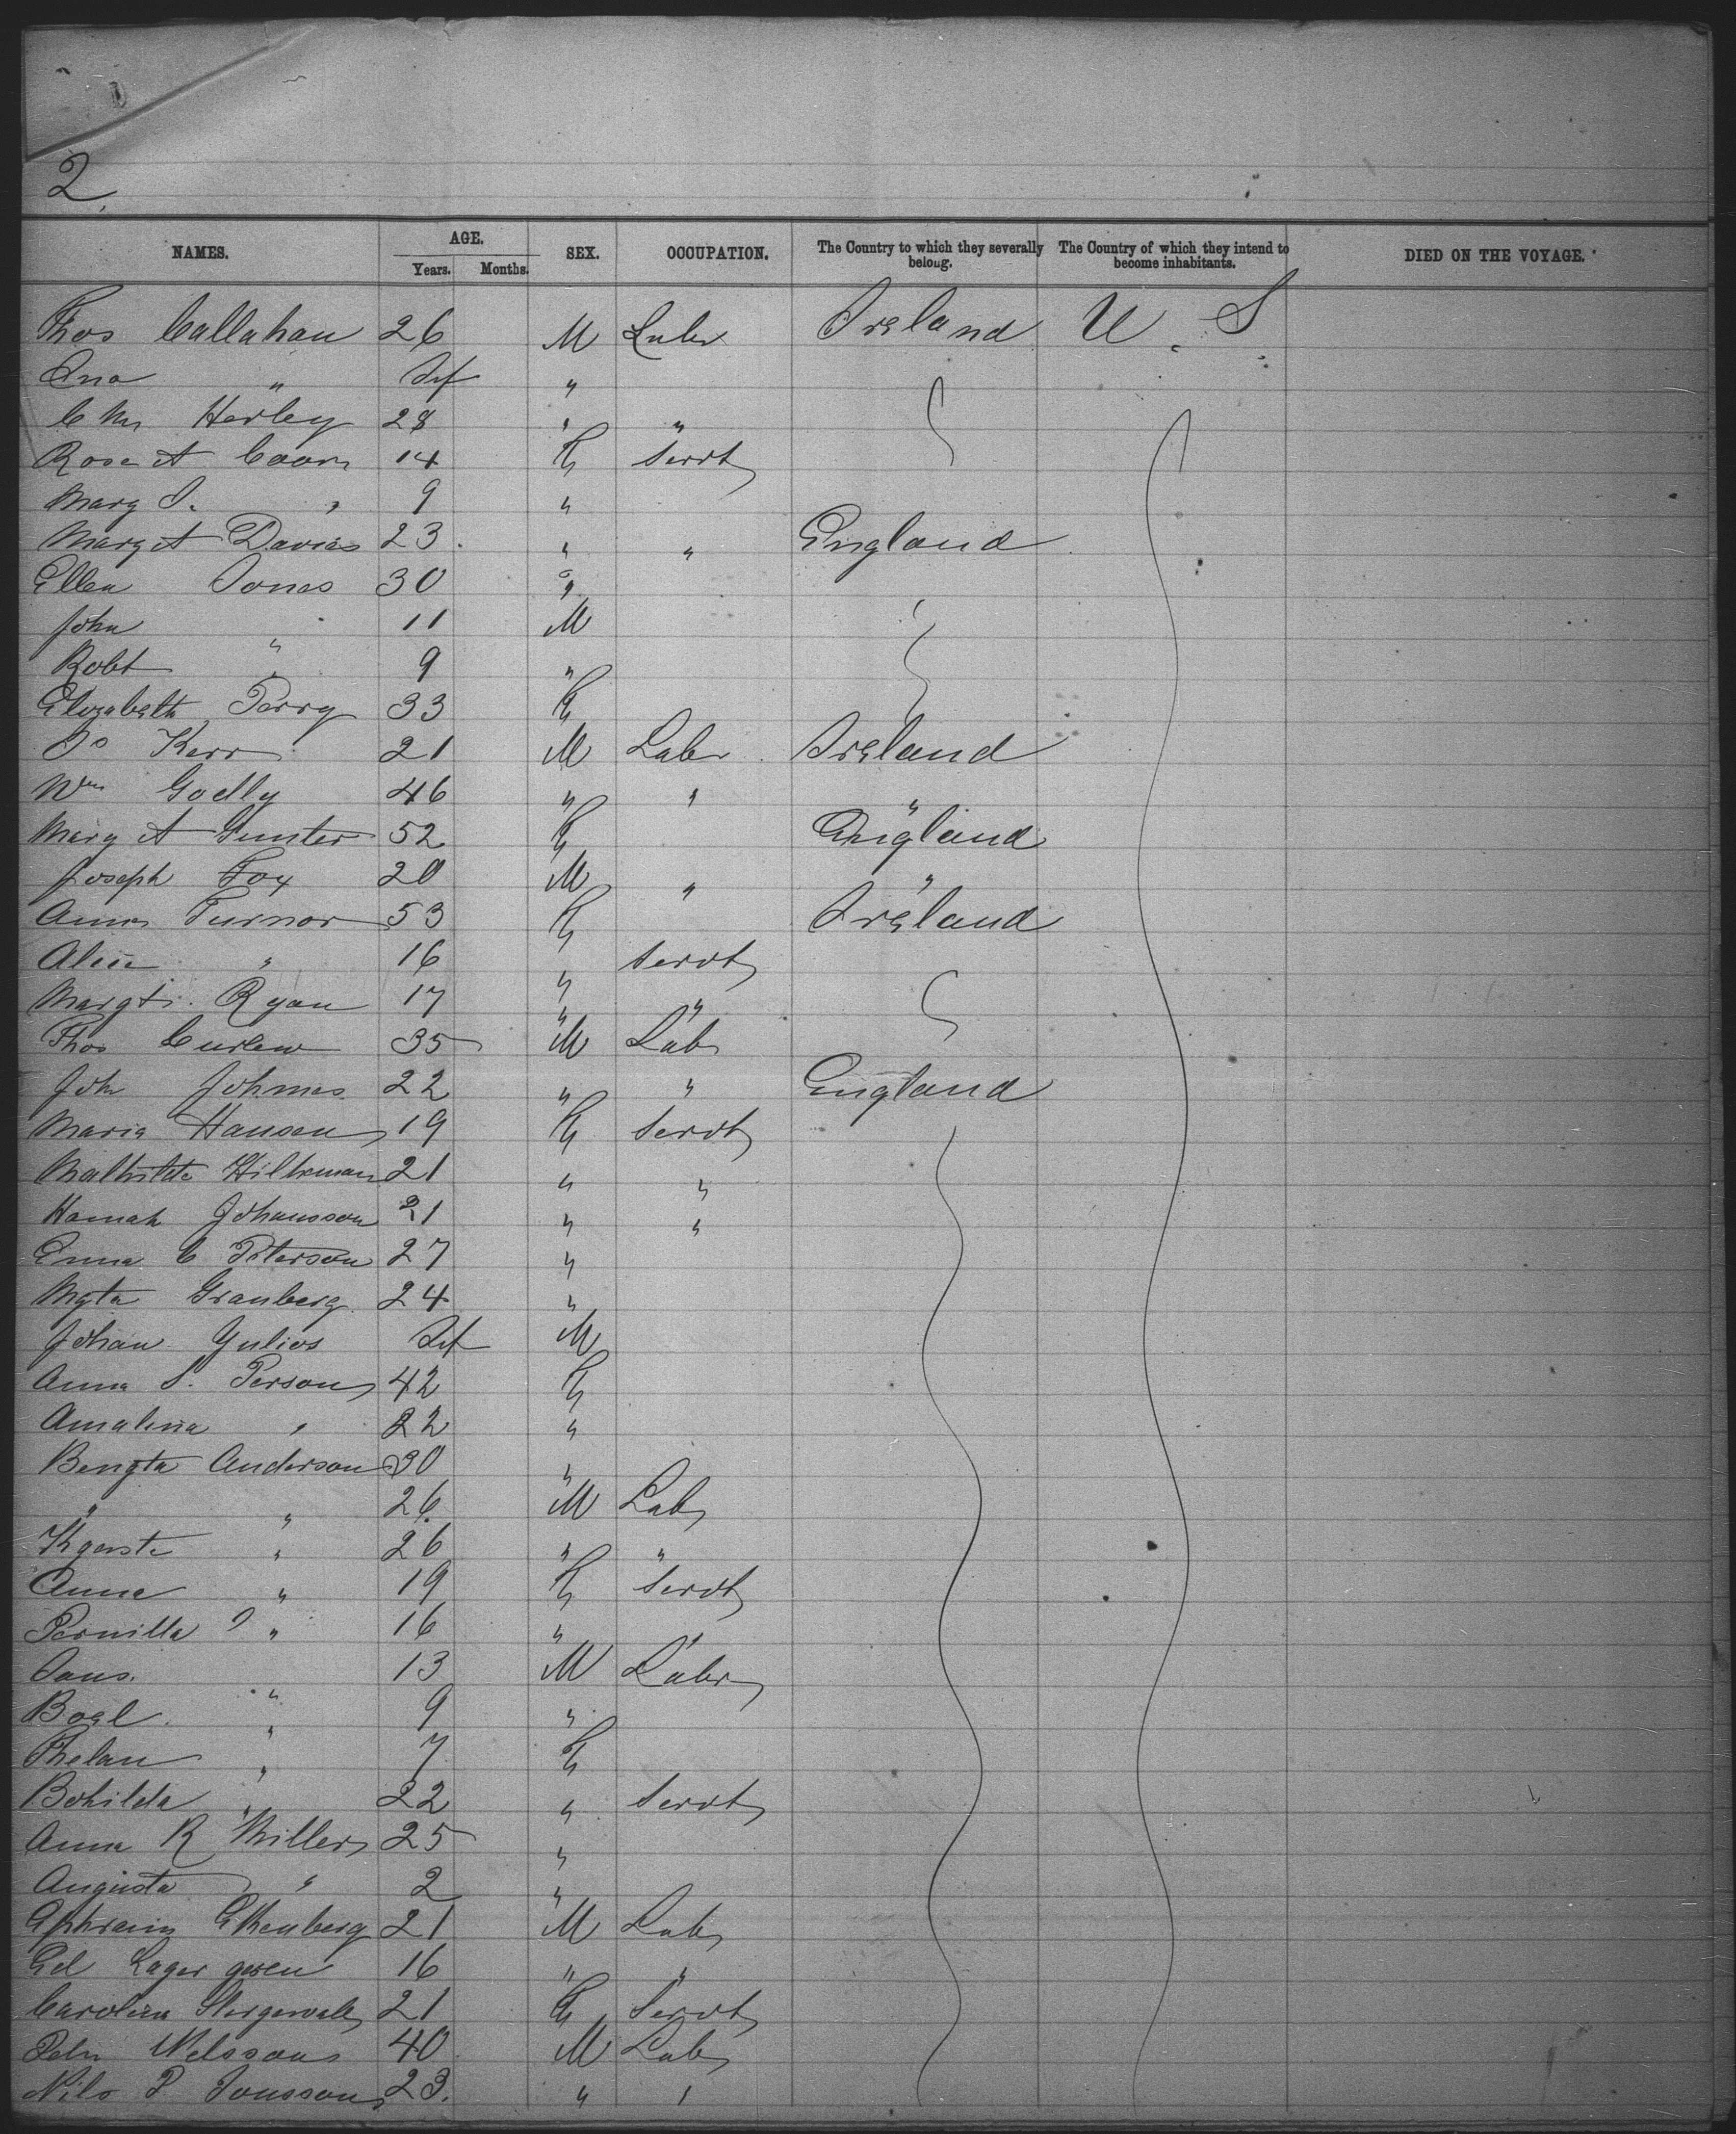 2.
NAMES. AGE. SEX. OCCUPATION. The Country to which they severally belong. The Country of which they intend to become inhabitants. DIED ON THE VOYAGE.
Years. Months.
Thos Callahan 26 M Labr Ireland U. S
" Inf "
Herley 28 " "
Rose A 14 F Servt
Mary 9 "
Margt Davies 23 " " England
Ellen Jones 30 "
John " 11 M
Robt " 9 "
Elizabeth Perry 33 F
Jo Kerr 21 M Labr Ireland
Wm Goelly 46 " " "
Mary A Gunter 52 F England
Joseph Fox 20 M " "
Turnor 53 F Ireland
Alice " 16 " Servt
Margt Ryan 17 " "
Thos Curlew 35 M Lab
Joh Johmes 22 " " England
Maria Hansen 19 F Servt
Mathilda 21 " "
Hannah Johansson 21 " "
Emma C Peterson 27 "
Mgta Granberg 24 "
Johan Yulios Inf M
Anna S. Person 42 F
Amalina " 22 "
Bengta Anderson 30 "
" " 26 M Lab
" 26 " "
Anna " 19 F Servt
Pernilla " 16 " "
Jans. " 13 M Labr
Boel " 9 "
Thelan " 7 F
Bohilda " 22 " Servt
Anna R Miller 25 "
Augusta " 2 "
Ephraim 21 M Lab
Ed Lager gren 16 " "
Carolina 21 F Servt
Nelsson 40 M Lab
Nils P Jonsson 23. " "